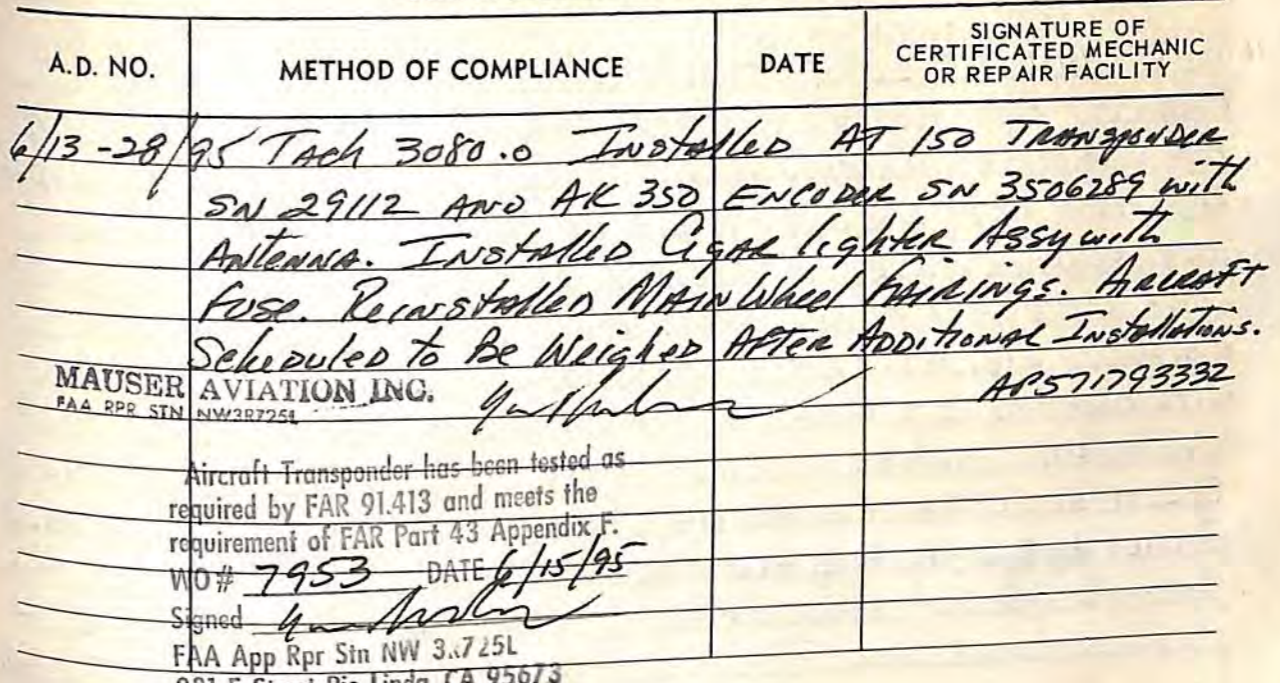 A.D. NO. METHOD OF COMPLIANCE DATE SIGNATURE OF CERTIFICATED MECHANIC OR REPAIR FACILITY
6/13-28/95 Tach 3080.0 Installed AT 150 Transponder
SN 29112 AND AK 350 ENCODER SN 3506289 with
Antenna. Installed Cigar lighter Assy with
Fuse. Reinstalled Main Wheel Fairings. Aircraft
Scheduled to Be Weighed After Additional Installations.
MAUSER AVIATION INC.
AP571793332
FAA RPR STN NW3R725L
Aircraft Transponder has been tested as
required by FAR 91.413 and meets the
requirement of FAR Part 43 Appendix F.
WO# 7953 DATE 6/15/95
Signed
FAA App Rpr Stn NW 3R725L
Street Rio Linda, CA 95673